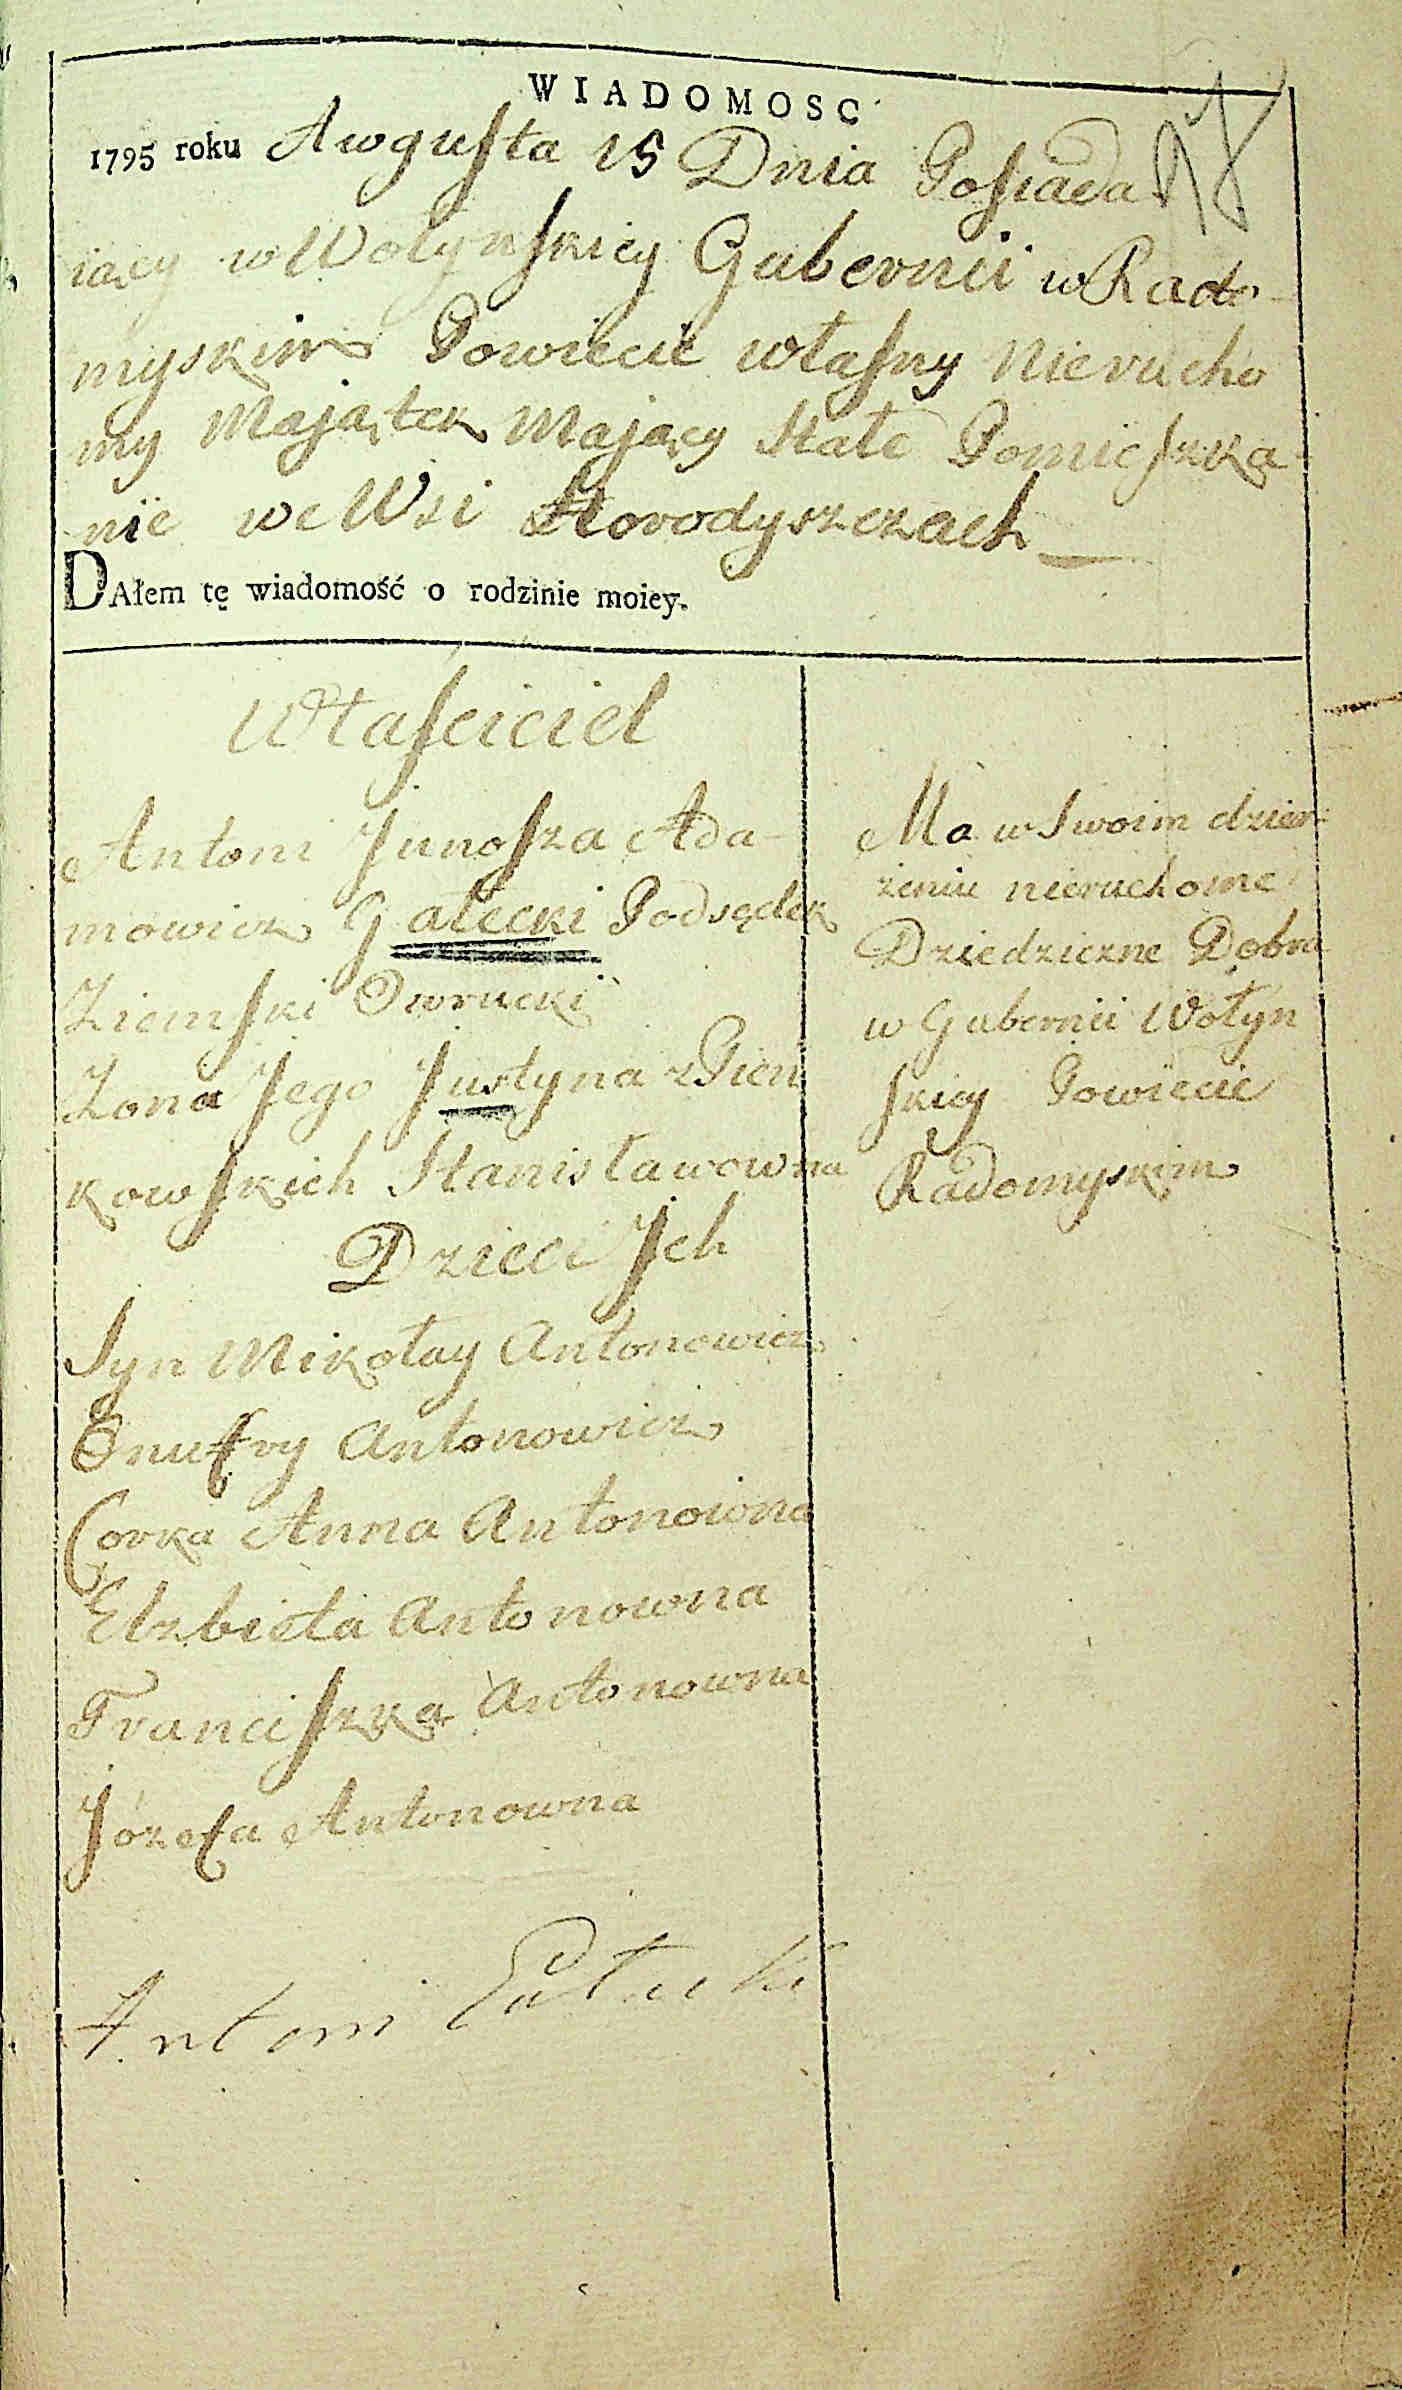 WIADOMOSC
1795 roku Awgusta 15 Dnia Posiada
iący w Wołynskiey Gubernii w Rado
myskim Powiecie własny Nierucho
my Majątek Mający Stałe Pomieszka
nie we Wsi Horodyszczach
DAłem tę wiadomość o rodzinie moiey.
Własciciel
Antoni Junosza Ada-
mowicz Gałecki Podsędek
Ziemski Owrucki
Zona Jego Justyna z Pien
kowskich Stanisławowna
Dzieci Jch
Syn Mikołay Antonowicz
Onufry Antonowicz
Corka Anna Antonowna
Elzbieta Antonowna
Franciszka Antonowna
Józefa Antonowna
Antoni Gałecki
Ma w Swoim dzier
zeniu nieruchome
Dziedziczne Dobra
w Gubernii Wołyn
skiey Powiecie
Radomyskim